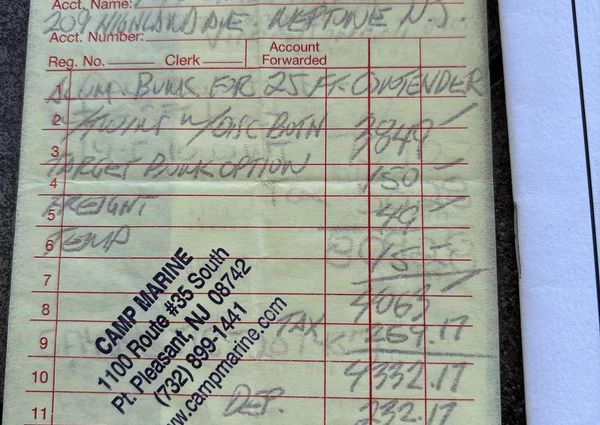 Acct. Name:
209 HIGHLAND AVE. NEPTUNE N.J.
Acct. Number:
Reg. No. Clerk Account Forwarded
1 ALUM. BUNK FOR 25 FT. CONTENDER
2 /TWINS W/DISC BOTH 3849
3 TARGET BUNK OPTION 150
4 FREIGHT 49
5 TEMP 15
6
7 4063
8 TAX 269.17
9 4332.17
10 DEP. 232.17
11
CAMP MARINE
1100 Route #35 South
Pt. Pleasant, NJ 08742
(732) 899-1441
www.campmarine.com